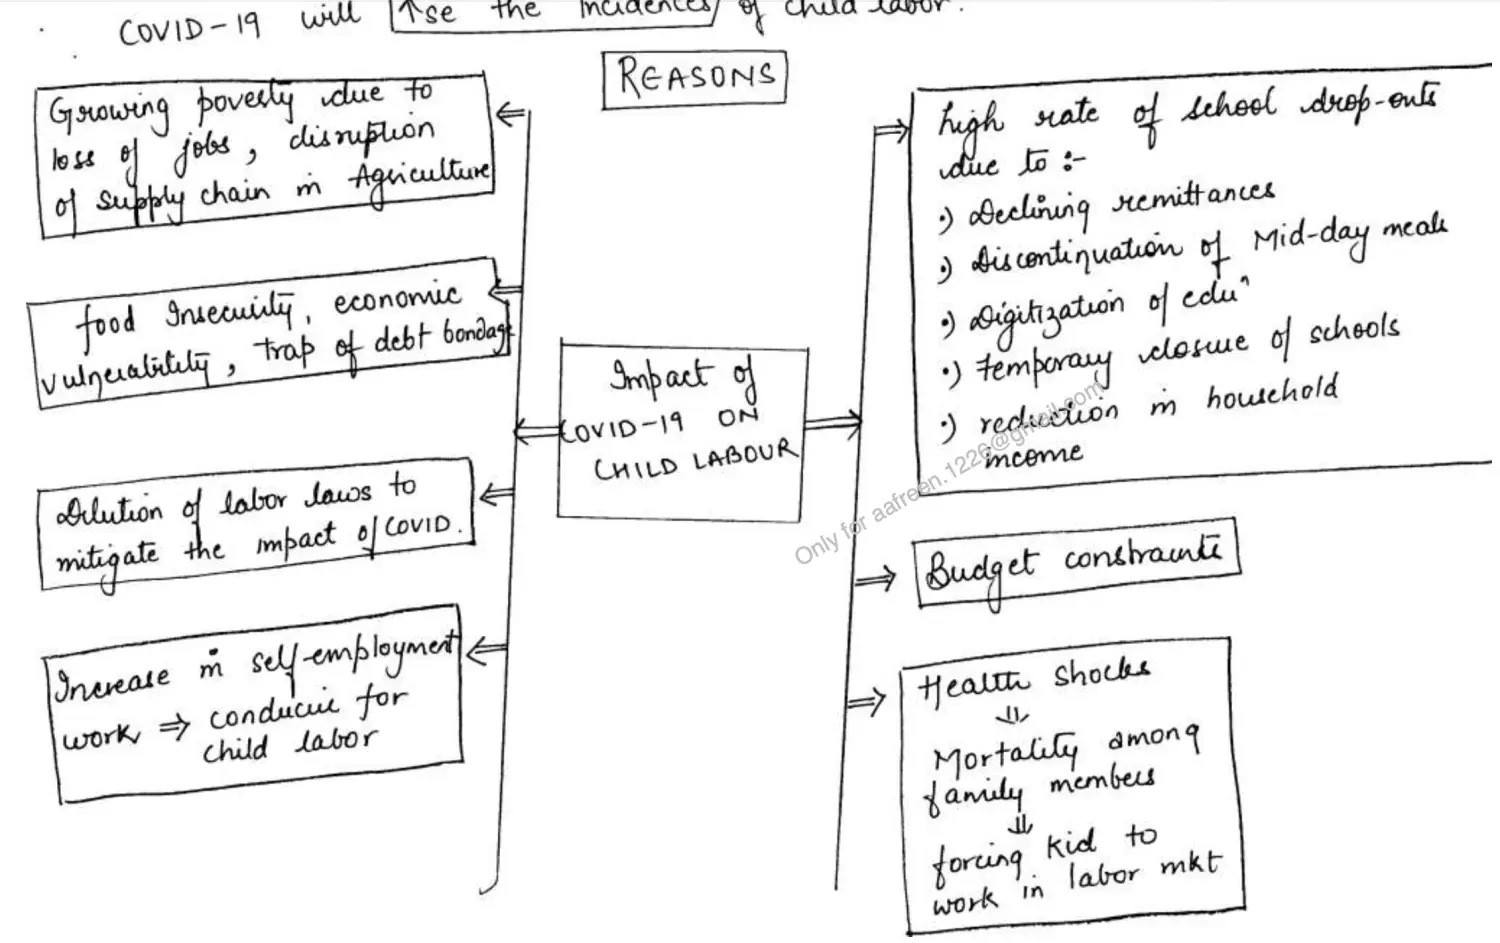 COVID-19 will ↑se the incidences of child labor.
REASONS
Growing poverty due to
loss of jobs, disruption
of supply chain in Agriculture
food Insecurity, economic
vulnerability, trap of debt bondage
Dilution of labor laws to
mitigate the impact of COVID.
Increase in self-employment
work ⇒ conducive for
child labor
Impact of
COVID-19 ON
CHILD LABOUR
high rate of school drop-outs
due to :-
•) Declining remittances
•) Discontinuation of Mid-day meals
•) Digitization of eduⁿ
•) temporary closure of schools
•) reduction in household
income
Budget constraints
Health Shocks
⇓
Mortality among
family members
⇓
forcing kid to
work in labor mkt
Only for aafreen.1226@gmail.com